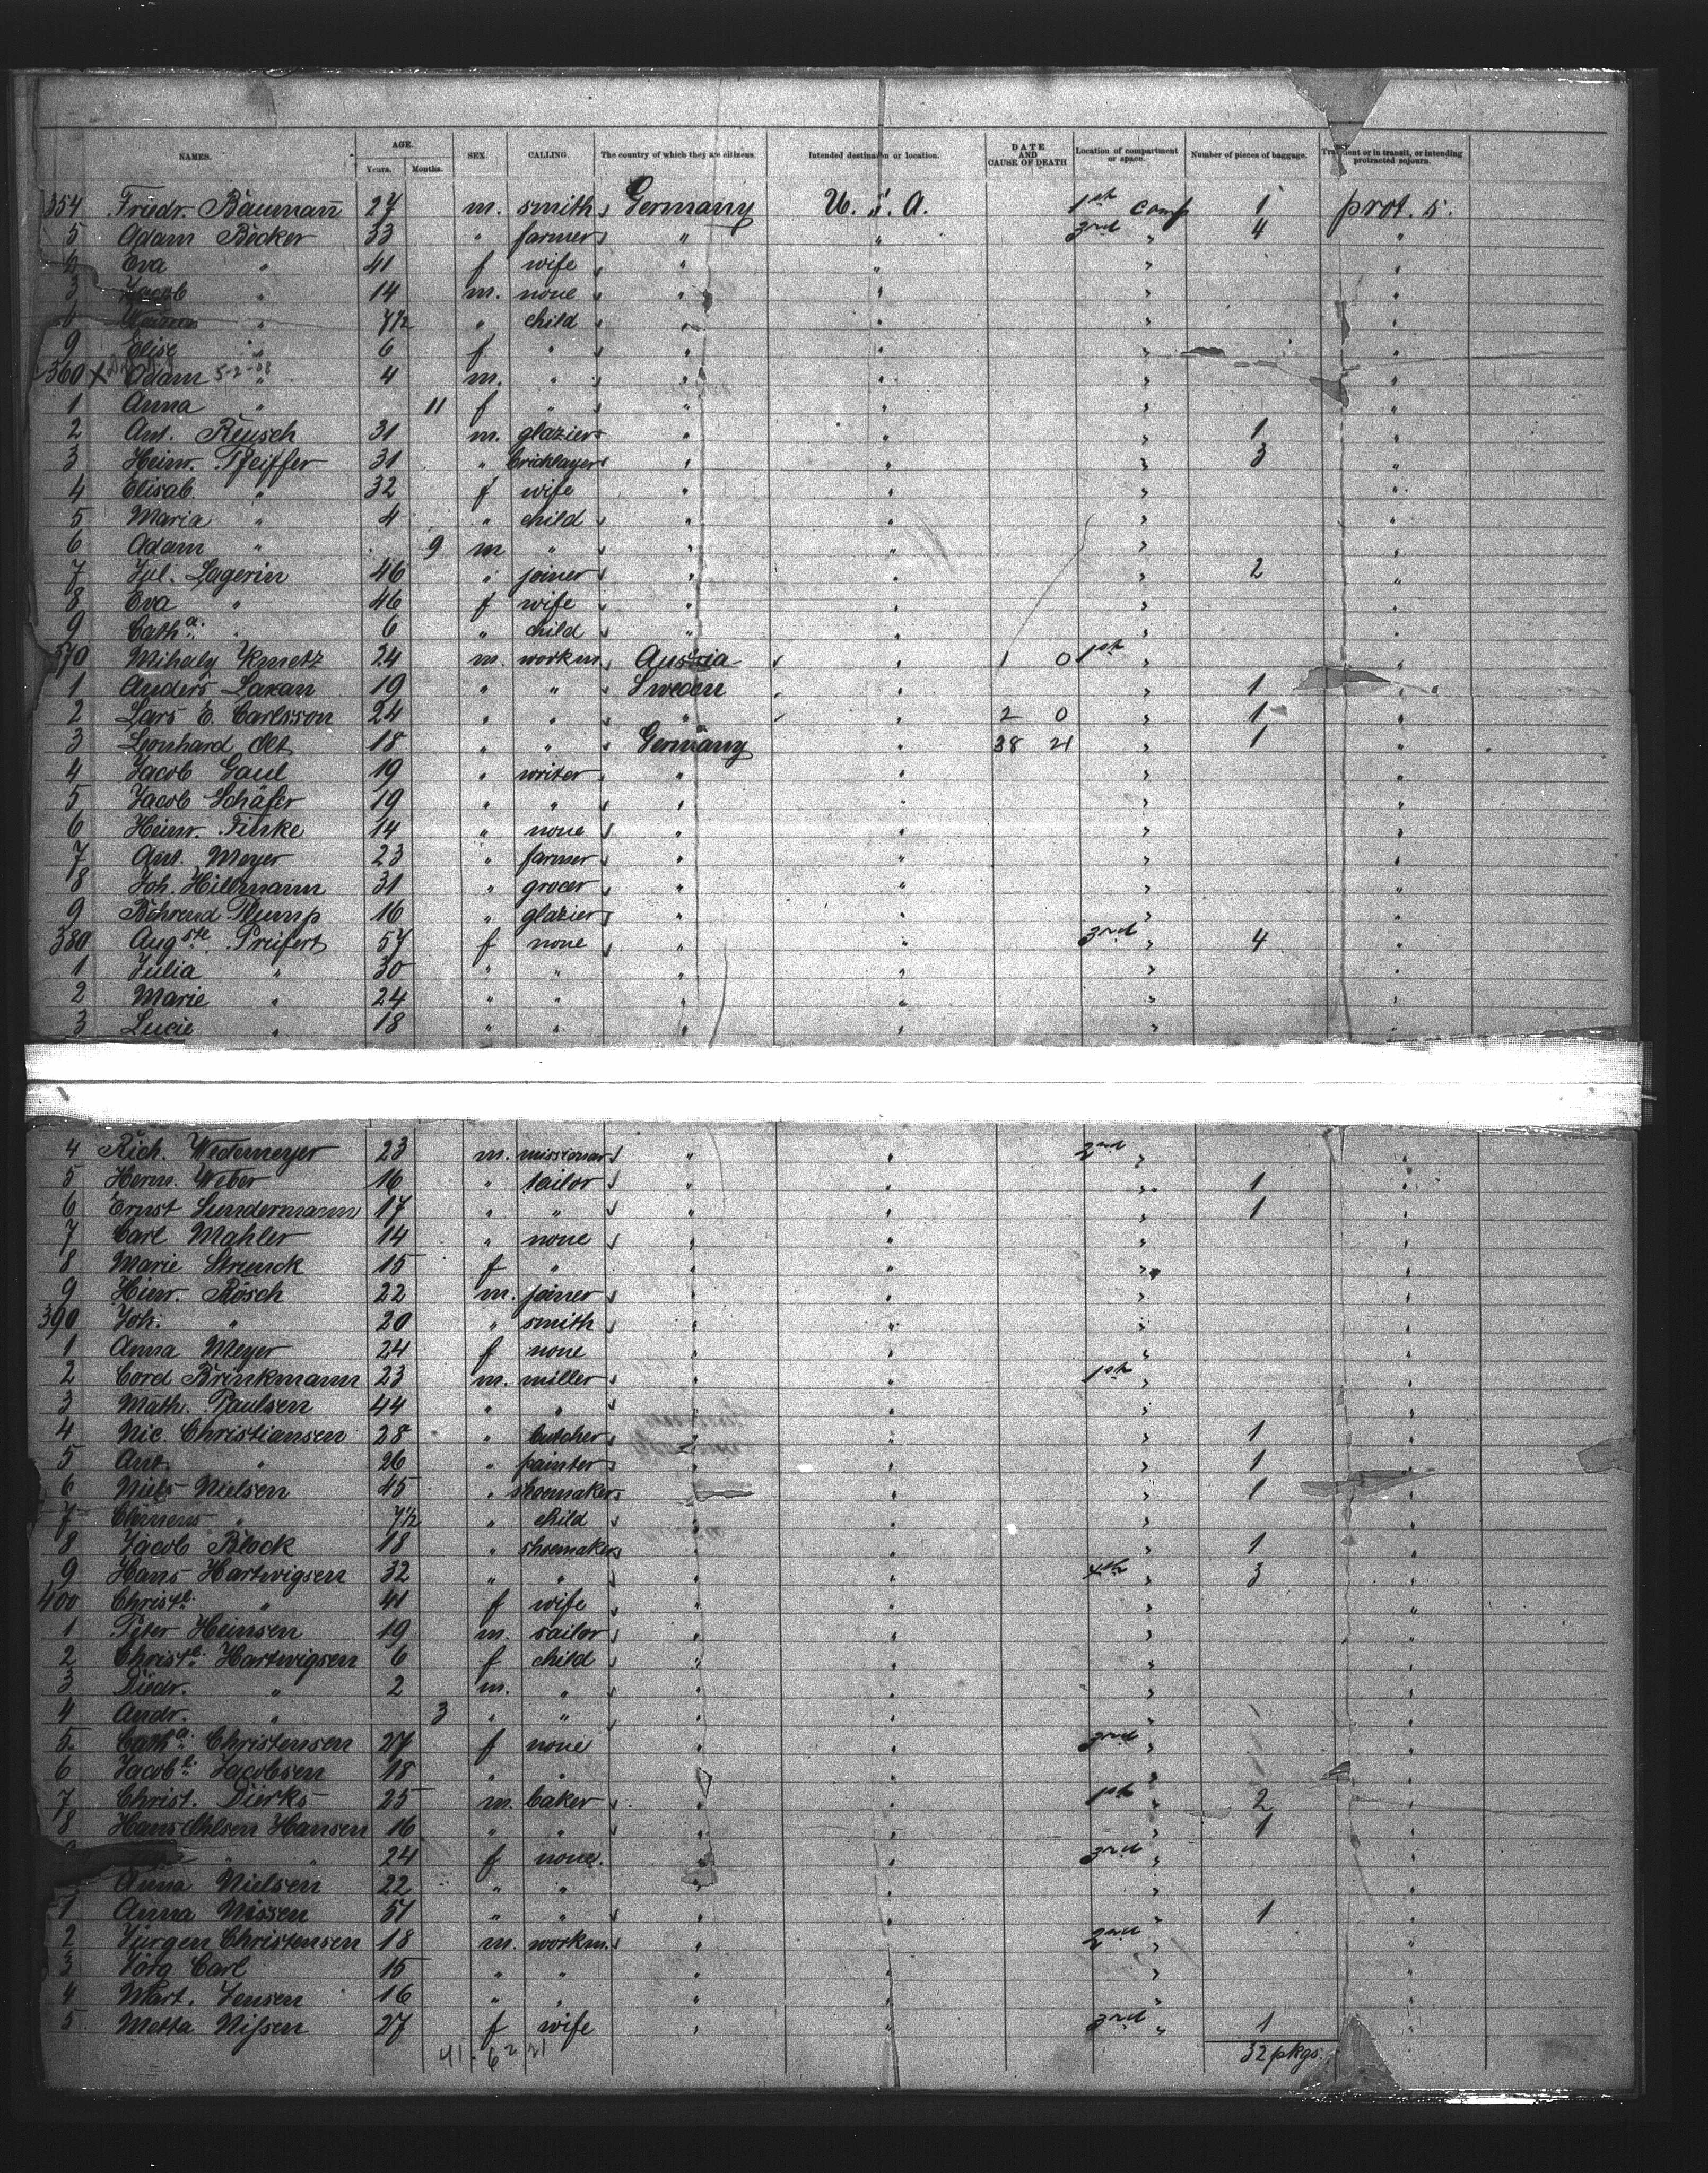 NAMES. AGE. Years. Months. SEX. CALLING. The country of which they are citizens. Intended destination or location. DATE AND CAUSE OF DEATH Location of compartment or space. Number of pieces of baggage. Transient or in transit, or intending protracted sojourn.
354 Friedr. Baumann 27 m. smith Germany U. S. A. 1st comp 1 prot. s.
5 Adam Becker 33 " farmer " " 3rd " 4 "
6 Eva " 41 f wife " " " "
3 Jacob " 14 m. none " " " "
" 7½ " child " " " "
9 Elise " 6 f " " " " "
360 X Adam 5-2-08 " 4 m. " " " " "
1 Anna " 11 f " " " " "
2 Ant. Reusch 31 m. glazier " " " 1 "
3 Heinr. Pfeiffer 31 " bricklayer " " " 3 "
4 Elisab. " 32 f wife " " " "
5 Maria " 4 " child " " " "
6 Adam " 9 m " " " " "
7 Jul. Lagerin 46 " joiner " " " 2 "
8 Eva " 46 f wife " " " "
9 Catha. " 6 " child " " " "
370 Mihaly Kmetz 24 m. workm. Austria " 1 0 1st " "
1 Anders Laxan 19 " " Sweden " " 1 "
2 Lars E. Carlsson 24 " " " " 2 0 " 1 "
3 Leonhard Olt 18 " " Germany " 38 21 " 1 "
4 Jacob Gaul 19 " writer " " " "
5 Jacob Schäfer 19 " " " " " "
6 Heinr. Finke 14 " none " " " "
7 Ant. Meyer 23 " farmer " " " "
8 Joh. Hillmann 31 " grocer " " " "
9 Behrend Plump 16 " glazier " " " "
380 Augste. Priefert 57 f none " " 3rd " 4 "
1 Julia " 30 " " " " " "
2 Marie " 24 " " " " " "
3 Lucie " 18 " " " " " "
4 Rich. Wedemeyer 23 m. missionar " " 2nd " "
5 Herm. Weber 16 " tailor " " " 1 "
6 Ernst Sundermann 17 " " " " " 1 "
7 Carl Mahler 14 " none " " " "
8 Marie Strunck 15 f " " " " "
9 Hinr. Rösch 22 m. joiner " " " "
390 Joh. " 20 " smith " " " "
1 Anna Meyer 24 f none " " " "
2 Cord Brinkmann 23 m. miller " " 1st " "
3 Math. Paulsen 44 " " " " " "
4 Nic. Christiansen 28 " butcher " " " 1 "
5 Ant. " 26 " painter " " " 1 "
6 Niels Nielsen 45 " shoemaker " " " 1 "
7 Clemens " 7½ " child " " " "
8 Jacob Block 18 " shoemaker " " " 1 "
9 Hans Hartwigsen 32 " " " " 4th " 3 "
400 Christe. " 41 f wife " " " "
1 Peter Heinsen 19 m. sailor " " " "
2 Christe. Hartwigsen 6 f child " " " "
3 Diedr. " 2 m. " " " " "
4 Andr. " 3 " " " " " "
5 Catha. Christensen 27 f none " " 3rd " "
6 Jacobe. Jacobsen 18 " " " " " "
7 Christ. Dierks 25 m. baker " " 1st " 2 "
8 Hans Ohlsen Hansen 16 " " " " " 1 "
" " 24 f none. " " 3rd " "
Anna Nielsen 22 " " " " " "
1 Anna Nissen 51 " " " " " 1 "
2 Jürgen Christensen 18 m. workm. " " 2nd " "
3 Jörg Carl 15 " " " " " "
4 Mart. Jensen 16 " " " " " "
5 Metta Nissen 27 f wife " " 3rd " 1 "
41 - 6 2 21 32 pkgs.